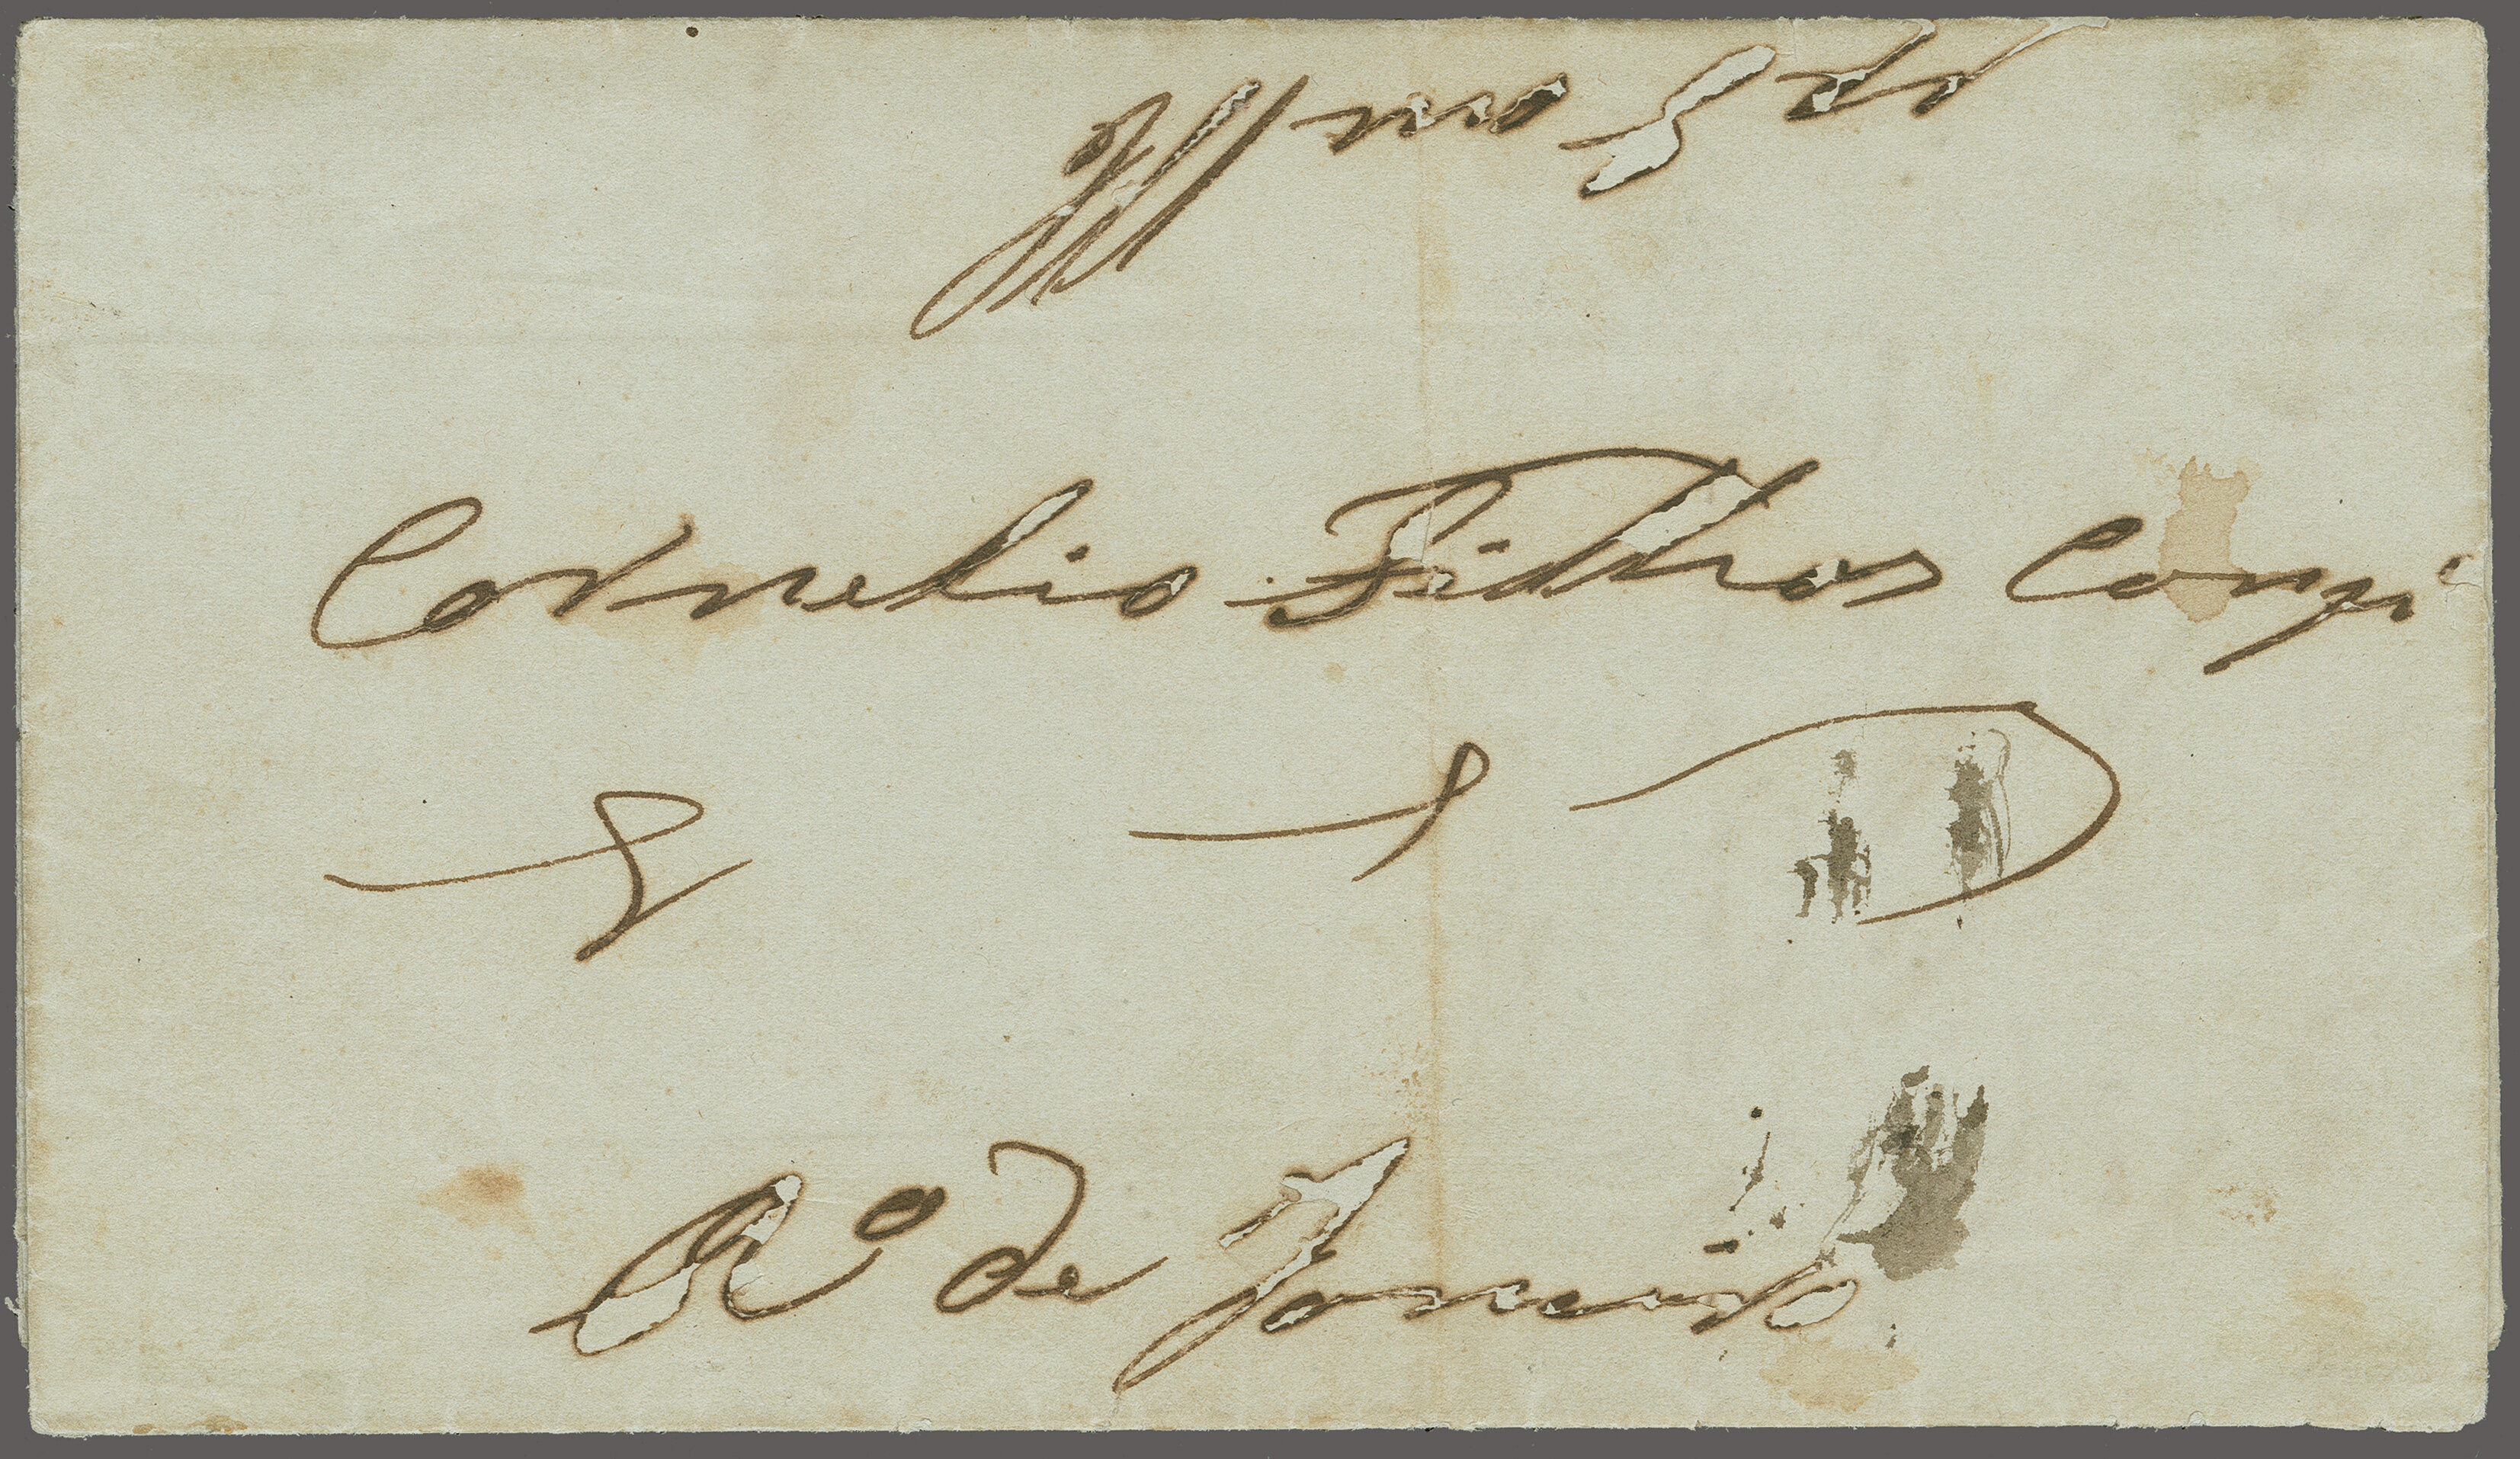 Illmos Srs
Cornelio Filhos Compa
Ro de Janeiro